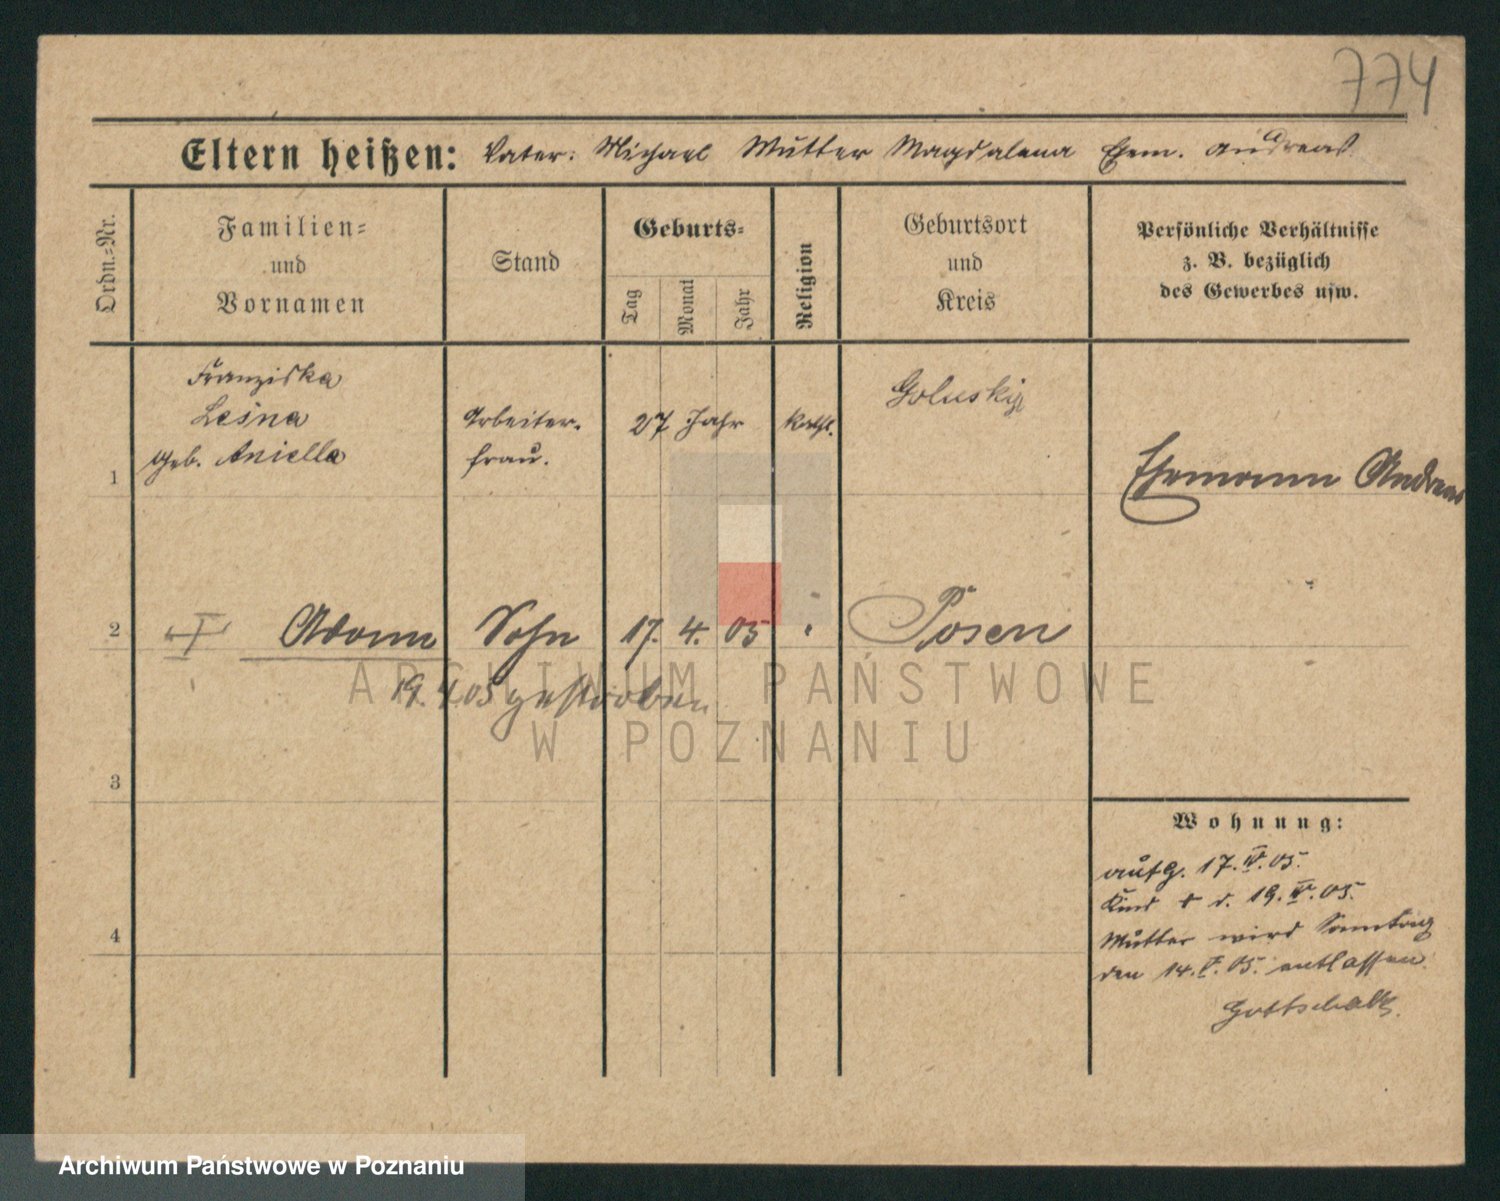 774
Eltern heißen: Vater: Michael Mutter Magdalena Ehem. Andreas
Ordn.-Nr.
Familien-
und
Vornamen
Stand
Geburts-
Tag
Monat
Jahr
Religion
Geburtsort
und
Kreis
Persönliche Verhältnisse
z. B. bezüglich
des Gewerbes usw.
1
Franziska
Leśna
geb. Aniella
Arbeiter-
frau.
27 Jahr
kathl.
Goluski
Ehemann Andreas
2
Adam
Sohn
17. 4. 05
Posen
19. 4 05 gestorben
3
4
Wohnung:
aufg. 17. IV. 05.
Kind † d. 19. IV. 05.
Mutter wird Sonntag
den 14. V. 05. entlassen.
Gottschalk.
ARCHIWUM PAŃSTWOWE
W POZNANIU
Archiwum Państwowe w Poznaniu